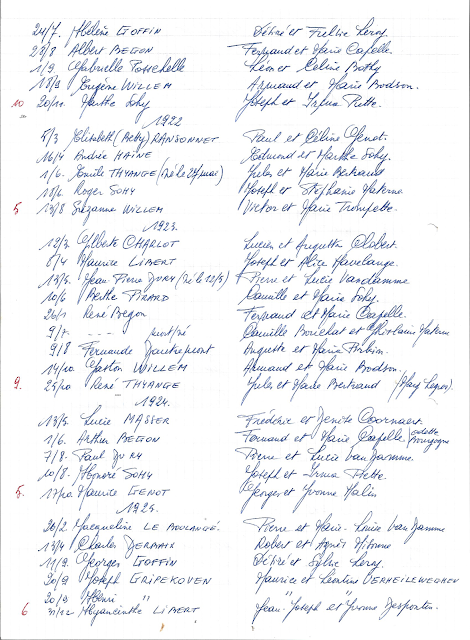 24/7. Hélène GOFFIN Désiré et Leroy.
23/8 Albert BEGON Fernand et Marie Capelle.
1/9. Gabrielle Léon et Céline Bothy
18/9 Eugène WILLEM Armand et Marie Bodson.
10 20/11. Marthe Sohy Joseph et Irma Piette.
1922
5/3 Elisabeth (Betty) RANSONNET Paul et Céline Genot.
16/4 Andrée HAINE Edmond et Marthe Sohy.
1/6. Emile THYANGE (Né le 29 mai) Jules et Marie Bertrand
18/6. Roger SOHY Joseph et Stéphanie Materne.
5 13/8 Suzanne WILLEM Victor et Marie Trompette.
1923.
12/3. Gilberte CHARLOT Lucien et Augusta Clobert.
8/4 Maurice LIBERT Joseph et Alice Havelange.
13/5. Jean Pierre JURY (Né le 12/5) Pierre et Lucie Vandamme
10/6 Berthe PIRARD Camille et Marie Sohy.
26/1 René Begon Fernand et Marie Capelle.
9/7. - - - mort/né Camille Bouchat et Ghislaine
9/8 Fernande Dautrepont Auguste et Marie
14/10 Gaston WILLEM Armand et Marie Bodson.
9. 25/10 René THYANGE Jules et Marie Bertrand
1924.
13/5. Lucie MASSER Frédéric et Denise Coornaert
1/6. Arthur BEGON Fernand et Marie Capelle (Odette Bourgogne
7/8. Paul JURY Pierre et Lucie Van Damme.
10/8. Honoré SOHY Joseph et Irma Piette.
5. 17/10 Maurice GENOT Georges et Yvonne Halin
1925.
20/2 Jacqueline LE BOULANGÉ. Pierre et Marie-Louise Van Damme
13/4 Charles DERMAIX Robert et Agnès
11/9. Georges GOFFIN Désiré et Sylvie Leroy.
20/9 Joseph GRIPEKOVEN Maurice et Léontine
20/9 Henri " " "
6 31/12 Hyancinthe LIBERT Jean Joseph et Yvonne Despontin.